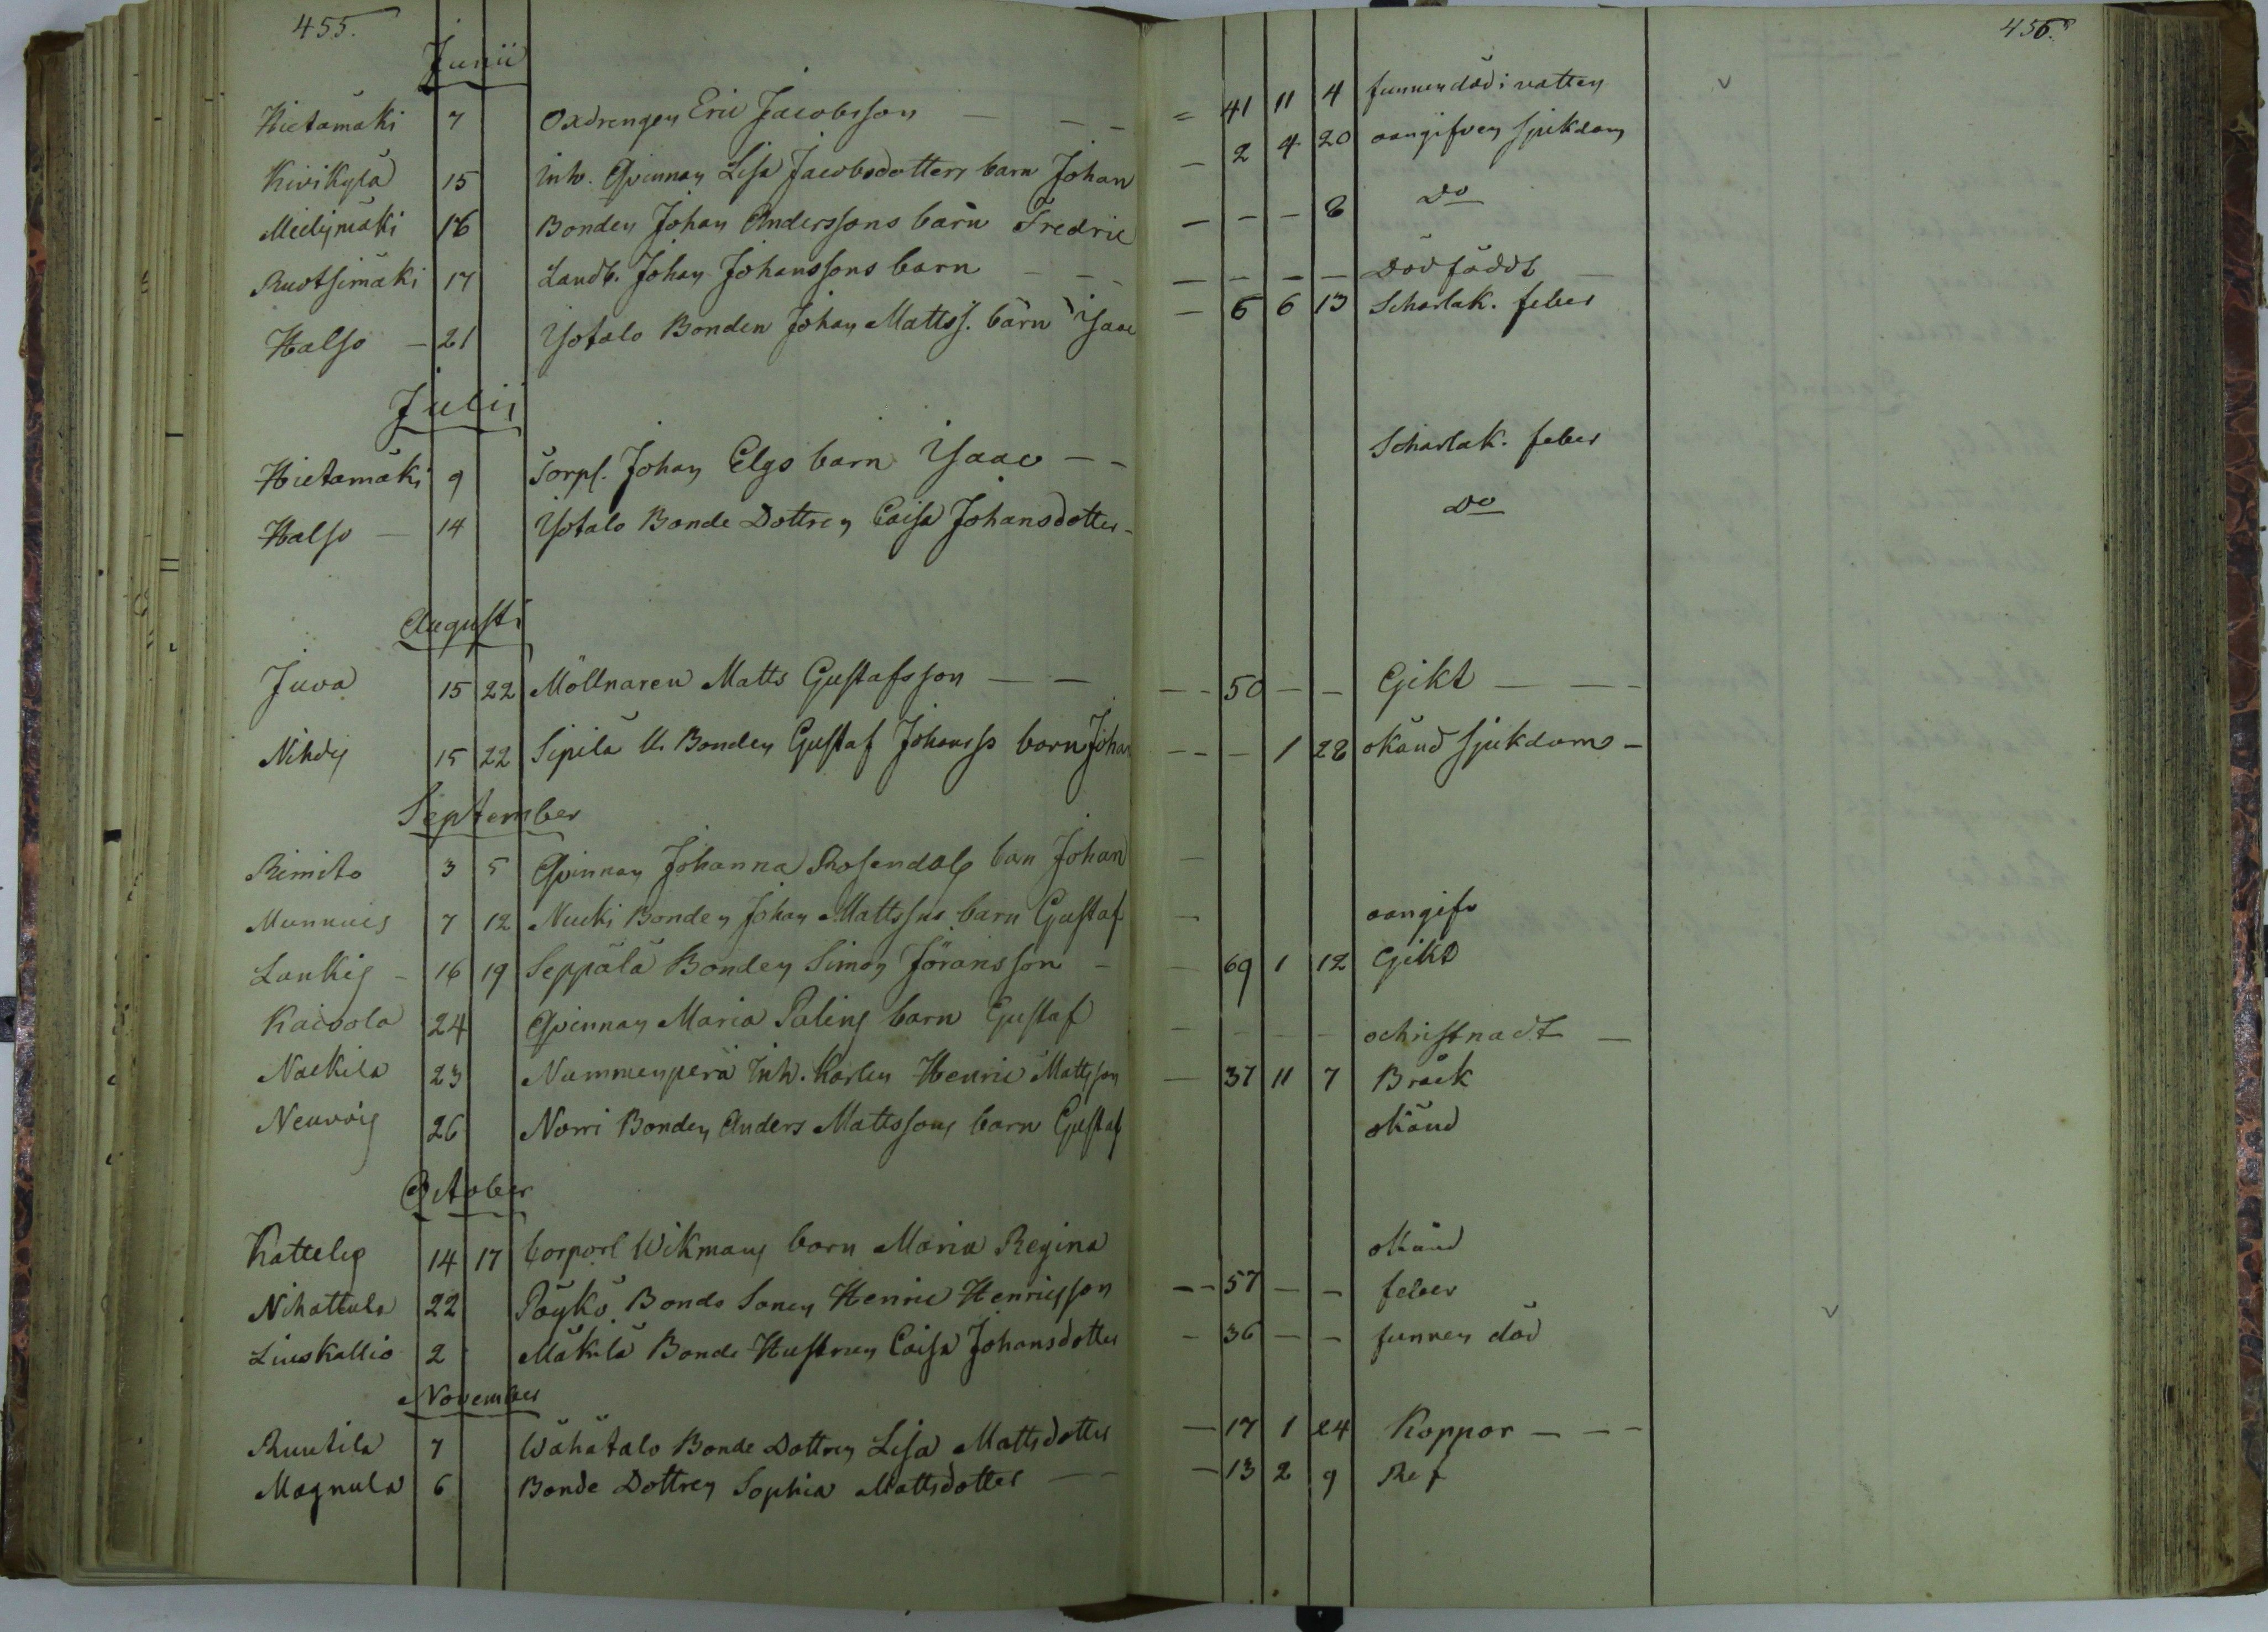 455. 456.
Junii
Hietamäki 7 Oxdrengen Eric Jacobsson — — — 41 11 4 funnen död i vatten
Kivikylä 15 inh. Qvinnan Lisa Jacobsdotters barn Johan — 2 4 20 oangifven sjukdom
Mielijmäki 16 Bonden Johan Anderssons barn Fredric — — — 8 Do
Ruotsimäki 17 Landb. Johan Johanssons barn — — — — — — Dödfödt —
Halso — 21 Ysotalo Bonden Johan Mattss. barn Isaac — 6 6 13 Scharlak. feber
Julii
Hietamäki 9 Torp. Johan Elgs barn Isaac — — Scharlak. feber
Halso — 14 Ysotalo Bonde Dottren Caisa Johansdotter — Do
Augusti
Juva 15 22 Möllnaren Matts Gustafsson — — — 50 — — Gikt — — —
Nihdy 15 22 Sipilä U. Bonden Gustaf Johanss barn Johan — — — 1 28 okänd sjukdom —
September
Rimito 3 5 Qvinnan Johanna Rosendahl barn Johan —
Munnuis 7 12 Nucki Bonden Johan Mattssns barn Gustaf — oangifv
Laukig — 16 19 Seppälä Bonden Simon Jöransson — — 69 1 12 Gikt
Kaivola 24 Qvinnan Maria Palins barn Gustaf — — — — ochristnadt —
Nackila 23 Nummenperä Inh. Karlen Henric Mattsson — 37 11 7 Bråck
Neuvois 26 Norri Bonden Anders Mattssons barn Gustaf okänd
October
Kattelig 14 17 Corporl Wikmans barn Maria Regina okänd
Nihattula 22 Pöykö Bonde Sonen Henric Henricsson — — 57 — — feber
Liuskallio 2 Mäkilä Bonde Hustrun Caisa Johansdotter — 36 — — funnen död
November
Ruutila 7 Wähätalo Bonde Dottren Lisa Mattsdotter — 17 1 24 Koppor — — —
Magnula 6 Bonde Dottren Sophia Mattsdotter — — — 13 2 9 Ref